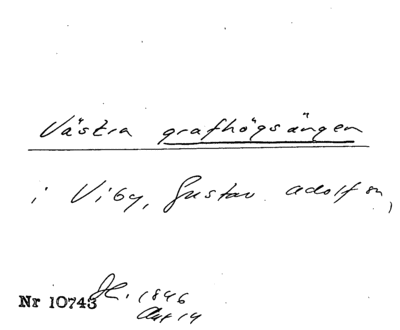 Västra grafhögsängen
i Viby, Gustav Adolf sn,
Nr 10743 H. 1846
Akt 14